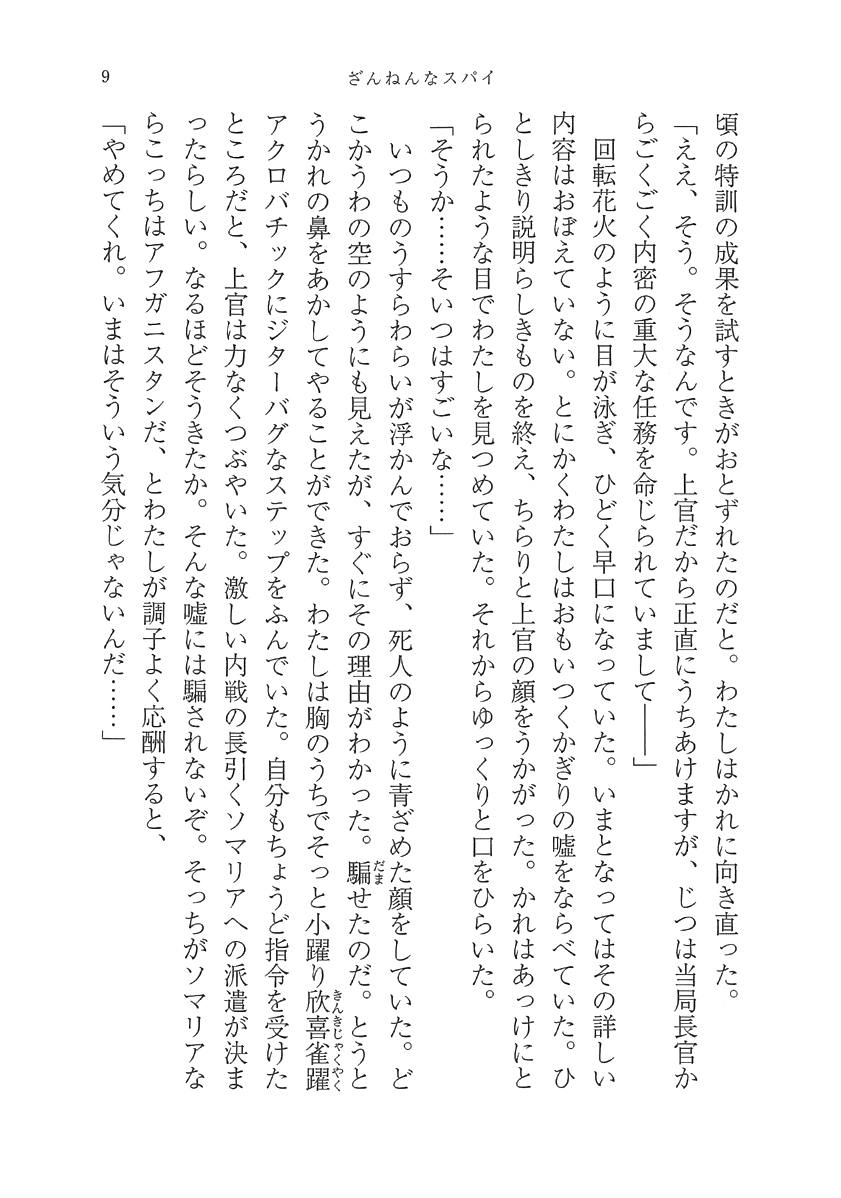 9
ざんねんなスパイ
頃の特訓の成果を試すときがおとずれたのだと。わたしはかれに向き直った。
「ええ、そう。そうなんです。上官だから正直にうちあけますが、じつは当局長官か
らごくごく内密の重大な任務を命じられていまして――」
　回転花火のように目が泳ぎ、ひどく早口になっていた。いまとなってはその詳しい
内容はおぼえていない。とにかくわたしはおもいつくかぎりの嘘をならべていた。ひ
としきり説明らしきものを終え、ちらりと上官の顔をうかがった。かれはあっけにと
られたような目でわたしを見つめていた。それからゆっくりと口をひらいた。
「そうか……そいつはすごいな……」
　いつものうすらわらいが浮かんでおらず、死人のように青ざめた顔をしていた。ど
こかうわの空のようにも見えたが、すぐにその理由がわかった。騙せたのだ。とうと
だま
うかれの鼻をあかしてやることができた。わたしは胸のうちでそっと小躍り欣喜雀躍
きんきじゃくやく
アクロバチックにジターバグなステップをふんでいた。自分もちょうど指令を受けた
ところだと、上官は力なくつぶやいた。激しい内戦の長引くソマリアへの派遣が決ま
ったらしい。なるほどそうきたか。そんな嘘には騙されないぞ。そっちがソマリアな
らこっちはアフガニスタンだ、とわたしが調子よく応酬すると、
「やめてくれ。いまはそういう気分じゃないんだ……」